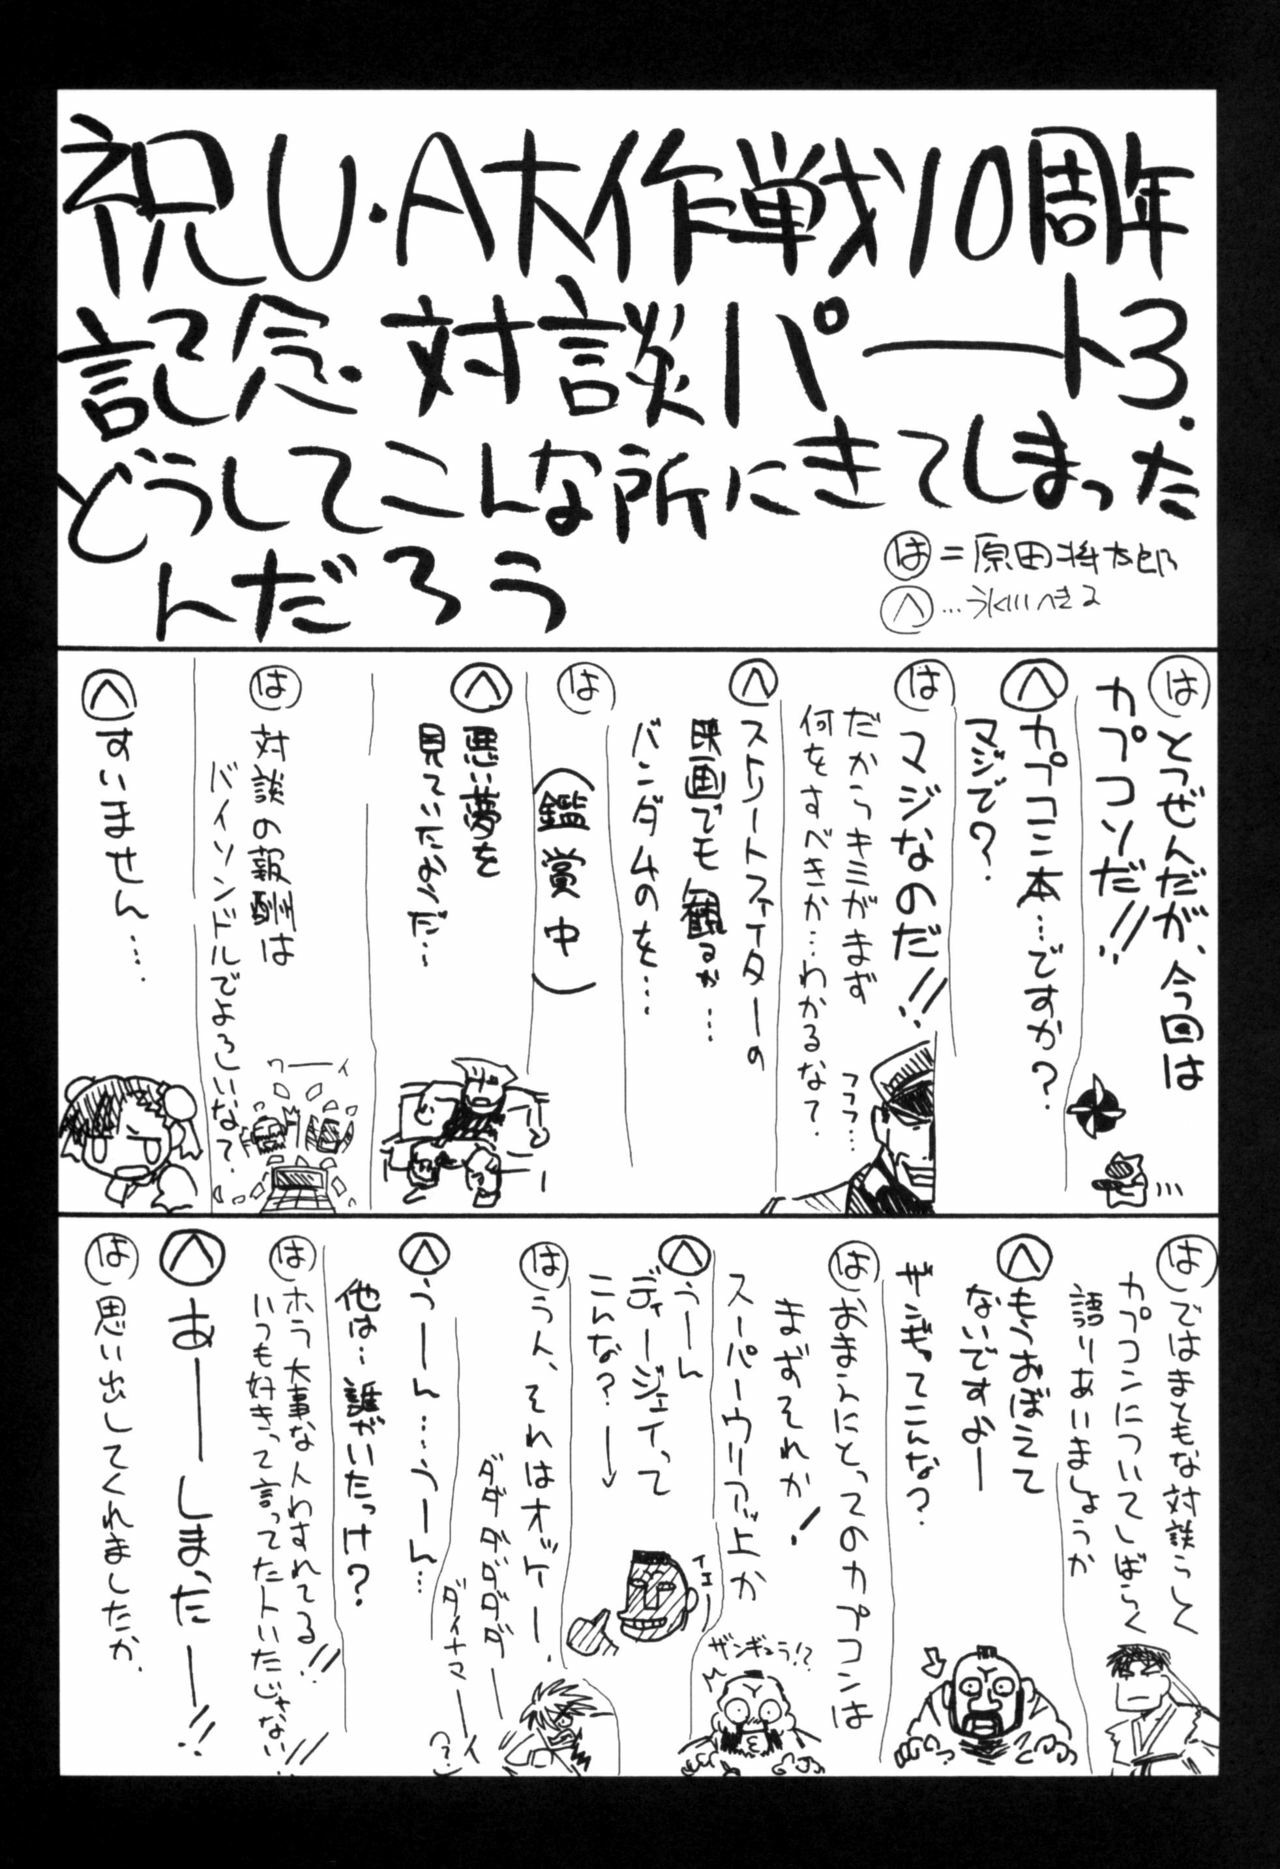 祝U・A大作戦10周年
記念・対談パート3.
どうしてこんな所にきてしまった
んだろう
は=原田将太郎
へ…
は とつぜんだが、今回は
カプコソだ!!
へ カプコン本…ですか?
マジで?
は マジなのだ!!
だからキミがまず
何をすべきか…わかるな?
フフフ…
へ ストリートファイターの
映画でも観るか…
バンダムのを…
は
(鑑賞中)
へ 悪い夢を
見ていたようだ…
は 対談の報酬は
バイソンドルでよろしいな?
ワーーイ
へ すいません….
は ではまともな対談らしく
カプコンについてしばらく
語りあいましょうか
へ もうおぼえて
ないですよー
ザンギってこんな?
は おまえにとってのカプコンは
まずそれか!
スーパーウリアッ上か
ザンギュラ!?
へ うーん
ディージェイって
こんな?→
イエー
は うん、それはオッケー.
ダダダダダダー
ダイナマーイ
(?)
へ うーん…うーん…
他は…誰がいたっけ?
は ホラ大事な人わすれてる!!
いつも好きって言ってた人いたじゃない!!
へ あーーしまったーー!!
は 思い出してくれましたか.